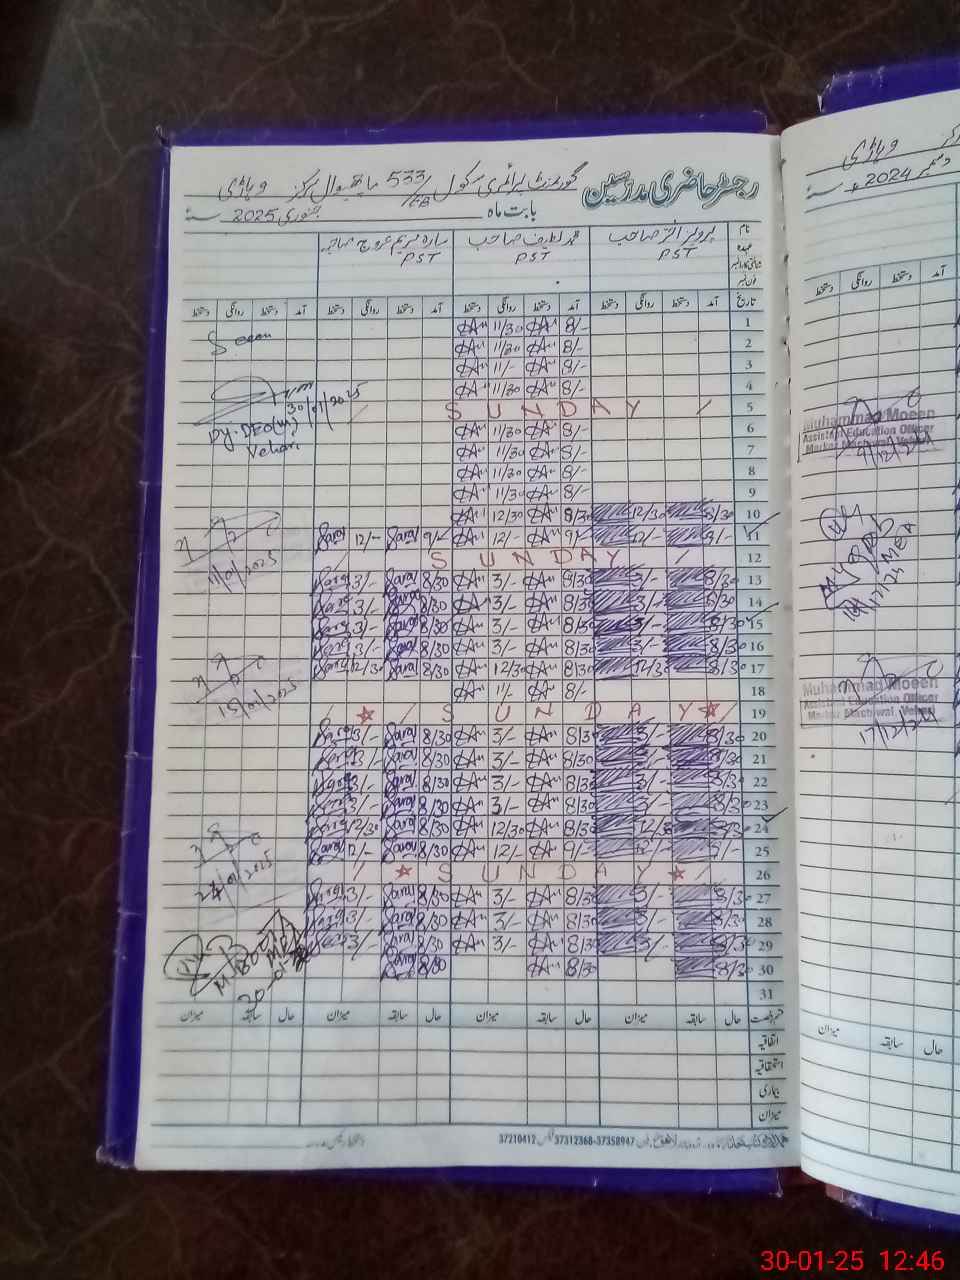 رجسٹر حاضری مدرسین گورنمنٹ پرائمری سکول 533/EB ماچھیوال مرکز وہاڑی
بابت ماہ جنوری 2025 سنہ
نام پرویز اختر صاحب محمد لطیف صاحب سارہ مریم عروج صاحبہ
عہدہ PST PST PST
تاریخ آمد دستخط روانگی دستخط آمد دستخط روانگی دستخط آمد دستخط روانگی دستخط آمد دستخط روانگی دستخط
1 8/- 11/30
2 8/- 11/30
3 8/- 11/-
4 8/- 11/30
5 SUNDAY
6 8/- 11/30
7 8/- 11/30
8 8/- 11/30
9 8/- 11/30
10 8/30 12/30 8/30 12/30
11 9/- 12/- 9/- 12/- 9/- Sara 12/- Sara
12 SUNDAY
13 8/30 3/- 8/30 3/- 8/30 Sara 3/- Sara
14 8/30 3/- 8/30 3/- 8/30 Sara 3/- Sara
15 8/30 3/- 8/30 3/- 8/30 Sara 3/- Sara
16 8/30 3/- 8/30 3/- 8/30 Sara 3/- Sara
17 8/30 12/30 8/30 12/30 8/30 Sara 12/30 Sara
18 8/- 11/-
19 SUNDAY
20 8/30 3/- 8/30 3/- 8/30 Sara 3/- Sara
21 8/30 3/- 8/30 3/- 8/30 Sara 3/- Sara
22 8/30 3/- 8/30 3/- 8/30 Sara 3/- Sara
23 8/30 3/- 8/30 3/- 8/30 Sara 3/- Sara
24 8/30 12/30 8/30 12/30 8/30 Sara 12/30 Sara
25 9/- 12/- 9/- 12/- 8/30 Sara 12/- Sara
26 SUNDAY
27 8/30 3/- 8/30 3/- 8/30 Sara 3/- Sara
28 8/30 3/- 8/30 3/- 8/30 Sara 3/- Sara
29 8/30 3/- 8/30 3/- 8/30 Sara 3/- Sara
30 8/30 8/30 8/30 Sara
31
حال سابقہ میزان حال سابقہ میزان حال سابقہ میزان حال سابقہ میزان
اتفاقیہ
استحقاقیہ
بیماری
میزان
37358947-37312368 37210412
Seen
30/01/2025
Dy. DEO (M)
Vehari
11/01/2025
15/01/2025
24/01/2025
وہاڑی
دسمبر 2024
آمد دستخط روانگی دستخط
Muhammad Moeen
Assistant Education Officer
Markaz Machiwal Vehari
9/12/24
MEA
Muhammad Moeen
Assistant Education Officer
Markaz Machiwal Vehari
17/12/24
حال سابقہ میزان
30-01-25 12:46